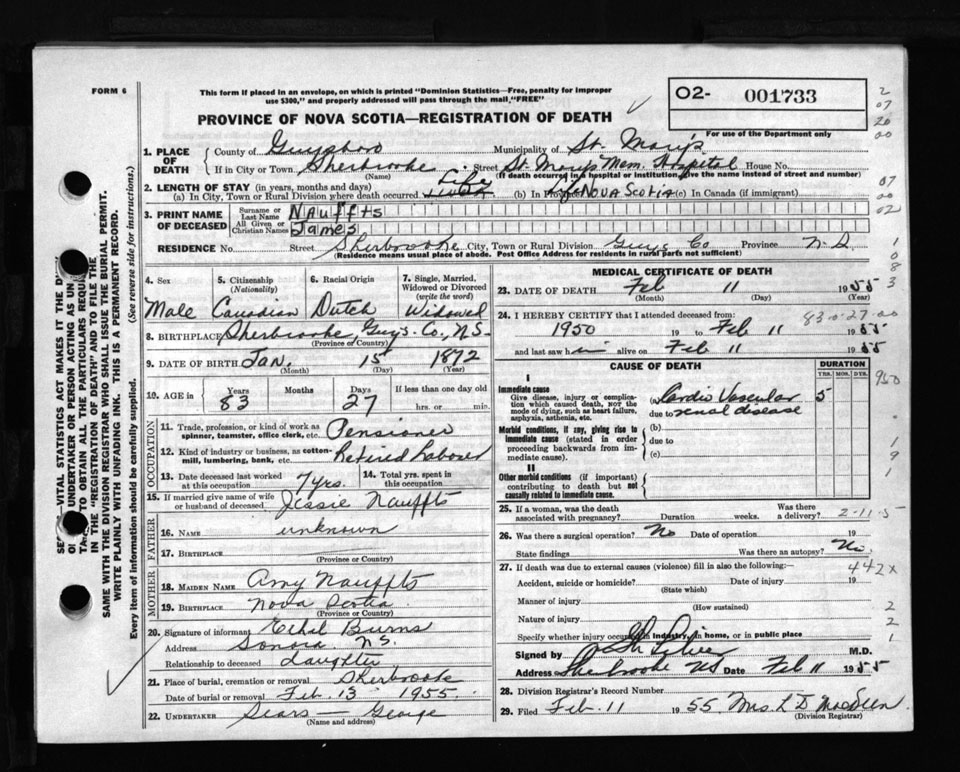 FORM 6
This form if placed in an envelope, on which is printed "Dominion Statistics—Free, penalty for improper
use $300," and properly addressed will pass through the mail, "FREE"
PROVINCE OF NOVA SCOTIA—REGISTRATION OF DEATH
02- 001733
For use of the Department only
1. PLACE OF DEATH
County of Guysboro Municipality of St. Mary's
If in City or Town Sherbrooke Street St. Mary's Mem. Hospital House No.
(Name) (If death occurred in a hospital or institution, give the name instead of street and number)
2. LENGTH OF STAY (in years, months and days)
(a) In City, Town or Rural Division where death occurred Life (b) In Province Life NOVA SCOTIA (c) In Canada (if immigrant)
3. PRINT NAME OF DECEASED
Surname or Last Name Nauffts
All Given or Christian Names James
RESIDENCE No. Street Sherbrooke City, Town or Rural Division Guys Co Province N.S.
(Residence means usual place of abode. Post Office Address for residents in rural parts not sufficient)
4. Sex Male
5. Citizenship (Nationality) Canadian
6. Racial Origin Dutch
7. Single, Married, Widowed or Divorced (write the word) Widowed
8. BIRTHPLACE Sherbrooke Guys. Co., N.S.
(Province or Country)
9. DATE OF BIRTH Jan. 15 1872
(Month) (Day) (Year)
10. AGE in Years 83 Months Days 27 If less than one day old hrs. or min.
OCCUPATION
11. Trade, profession, or kind of work as spinner, teamster, office clerk, etc. Pensioner
12. Kind of industry or business, as cotton-mill, lumbering, bank, etc. Retired Laborer
13. Date deceased last worked at this occupation 7 yrs.
14. Total yrs. spent in this occupation
15. If married give name of wife or husband of deceased Jessie Nauffts
FATHER
16. NAME unknown
17. BIRTHPLACE
(Province or Country)
MOTHER
18. MAIDEN NAME Amy Nauffts
19. BIRTHPLACE Nova Scotia
(Province or Country)
20. Signature of informant Ethel Burns
Address Sonora N.S.
Relationship to deceased Daughter
21. Place of burial, cremation or removal Sherbrooke
Date of burial or removal Feb. 13 1955
22. UNDERTAKER Sears George
(Name and address)
MEDICAL CERTIFICATE OF DEATH
23. DATE OF DEATH Feb 11 1955
(Month) (Day) (Year)
24. I HEREBY CERTIFY that I attended deceased from:
83-0-27-00
1950 19 to Feb 11 1955
and last saw him alive on Feb 11 1955
CAUSE OF DEATH
DURATION
YRS. MOS. DYS.
I
Immediate cause
Give disease, injury or complication which caused death, NOT the mode of dying, such as heart failure, asphyxia, asthenia, etc.
(a) Cardio Vascular 5
due to renal disease
Morbid conditions, if any, giving rise to immediate cause (stated in order proceeding backwards from immediate cause).
(b)
due to
(c)
II
Other morbid conditions (if important) contributing to death but not causally related to immediate cause.
25. If a woman, was the death associated with pregnancy? Duration weeks. Was there a delivery? 2-11-5
26. Was there a surgical operation? No Date of operation 19
State findings Was there an autopsy? No
27. If death was due to external causes (violence) fill in also the following:—
442x
Accident, suicide or homicide? Date of injury 19
(State which)
Manner of injury
(How sustained)
Nature of injury
Specify whether injury occurred in industry, in home, or in public place
Signed by M.D.
Address Sherbrooke NS Date Feb 11 1955
28. Division Registrar's Record Number
29. Filed Feb. 11 1955 Mrs. L D
(Division Registrar)
SAME WITH THE DIVISION REGISTRAR WHO SHALL ISSUE THE BURIAL PERMIT.
WRITE PLAINLY WITH UNFADING INK. THIS IS A PERMANENT RECORD.
Every item of information should be carefully supplied. (See reverse side for instructions.)